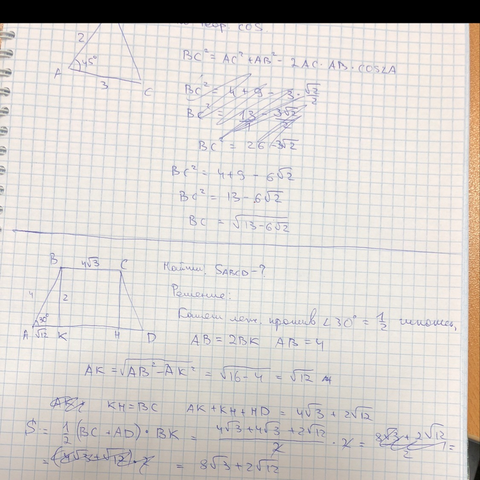 cos
2
45°
A
3
C
BC² = AC² + AB² - 2AC · AB · cos∠A
BC² = 4 + 9 -
BC² = 13 - 3√2
BC² = 26 - 3√2
BC² = 4 + 9 - 6√2
BC² = 13 - 6√2
BC = √13 - 6√2
B 4√3 C
4 2
30°
A √12 K 4 D
Найти SABCD - ?
Решение:
Катет леж. против ∠30° = 1/2 гипотен,
AB = 2BK AB = 4
AK = √AB² - AK² = √16 - 4 = √12
KH = BC AK + KH + HD = 4√3 + 2√12
S = 1/2 (BC + AD) · BK = 4√3 + 4√3 + 2√12 / 2 · 2 = 8√3 + 2√12 / 2 =
= (4√3 + √12) · 2 = 8√3 + 2√12